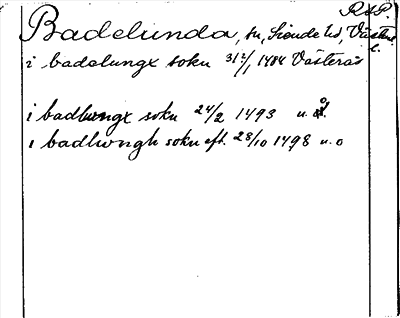 R A P.
Badelunda, sn, Siende hd, Västm.
l.
i badalungx sokn 31/1 1484 Västerås
i badlungx sokn 24/2 1493 u. å.
i badlwngh sokn eft. 28/10 1498 u. o